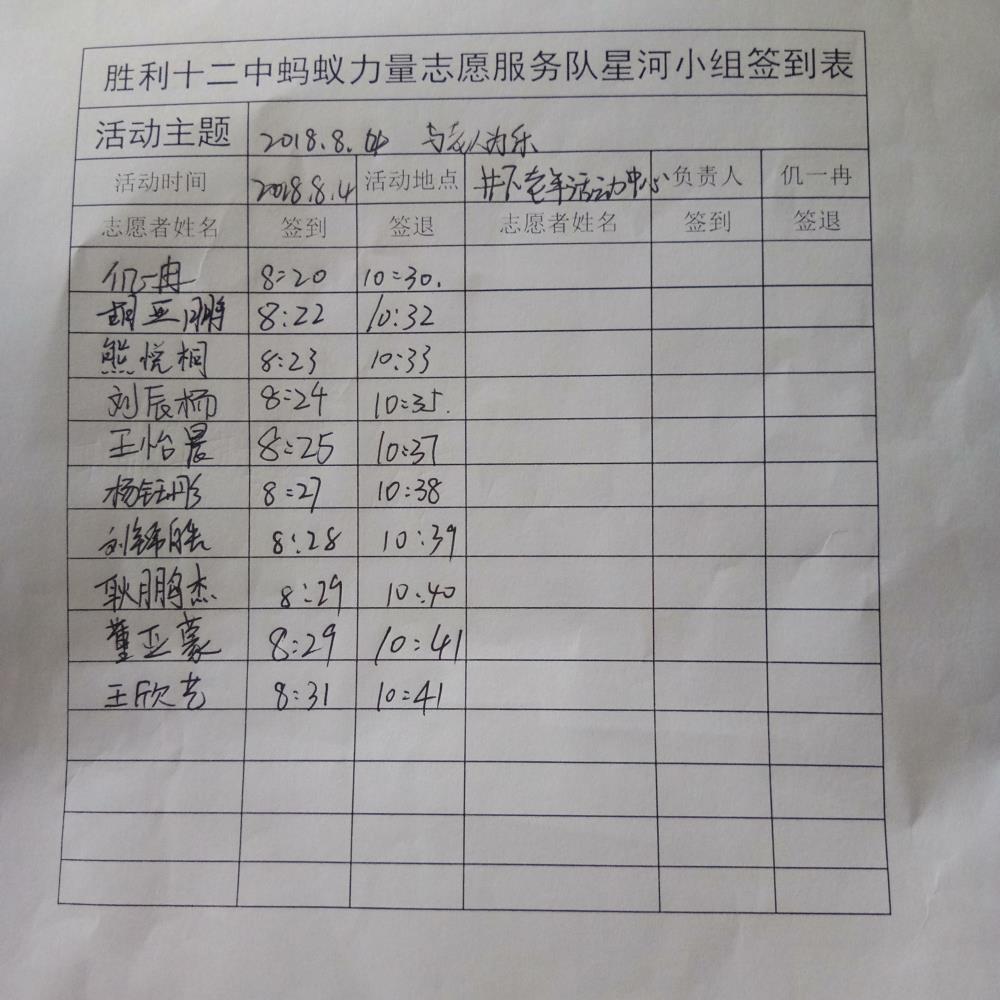 胜利十二中蚂蚁力量志愿服务队星河小组签到表
活动主题 2018.8.04 与老人为乐
活动时间 2018.8.4 活动地点 井下老年活动中心 负责人 仉一冉
志愿者姓名 签到 签退 志愿者姓名 签到 签退
仉一冉 8:20 10:30.
胡亚鹏 8:22 10:32
熊悦桐 8:23 10:33
刘辰杨 8:24 10:35.
王怡晨 8:25 10:37
杨钰彤 8:27 10:38
刘 8:28 10:39
耿鹏杰 8:29 10:40
董亚蒙 8:29 10:41
王欣艺 8:31 10:41